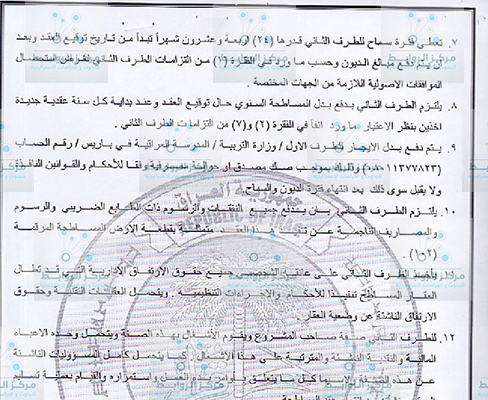 ٧. تعطى فترة سماح للطرف الثاني قدرها (٢٤) اربعة وعشرون شهراً تبدأ من تاريخ توقيع العقد وبعد
ان يتم دفع مبالغ الديون وحسب ما ورد في الفقرة (١) من التزامات الطرف الثاني لغرض استحصال
الموافقات الاصولية اللازمة من الجهات المختصة .
٨. يلتزم الطرف الثاني بدفع بدل المساطحة السنوي حال توقيع العقد وعند بداية كل سنة عقدية جديدة
اخذين بنظر الاعتبار ما ورد انفاً في الفقرة (٢) و(٧) من التزامات الطرف الثاني .
٩. يتم دفع بدل الايجار للطرف الاول / وزارة التربية / المدرسة العراقية في باريس / رقم الحساب
وذلك بموجب صك مصدق او حوالة مصرفية وفقا للأحكام والقوانين النافذة
ولا يقبل سوى ذلك بعد انتهاء فترة الديون والسماح .
١٠. يلتزم الطرف الثاني بان يدفع جميع النفقات والرسوم ذات الطابع الضريبي والرسوم
والمصاريف الناجمة عن هذا العقد متمثلة بقطعة الأرض المساطحة المرقمة
(٢و١) .
الطرف الثاني على عاتقه الشخصي جميع حقوق الارتفاق الادارية التي قد تطال
العقار المساطح تنفيذا للأحكام والاجراءات التنظيمية . ويتحمل العقبات التقنية وحقوق
الارتفاق الناشئة عن وضعية العقار .
١٢. للطرف الثاني صفة صاحب المشروع ويقوم الأشغال بهذه الصفة ويتحمل وحده الاعباء
المالية والتقنية الناشئة والمترتبة على هذا الاشغال . كما يتحمل كامل المسؤوليات الناشئة
عن هذه الصفة ولاسيما كل ما يتعلق بأوامر بدء العمل واستمراره والقيام بعملية تسليم
مركز الروابط